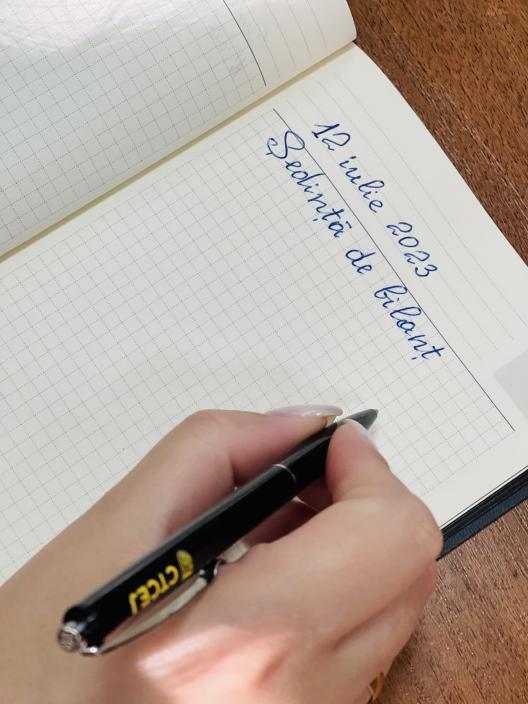 12 iulie 2023
Ședință de bilanț
CTCEJ